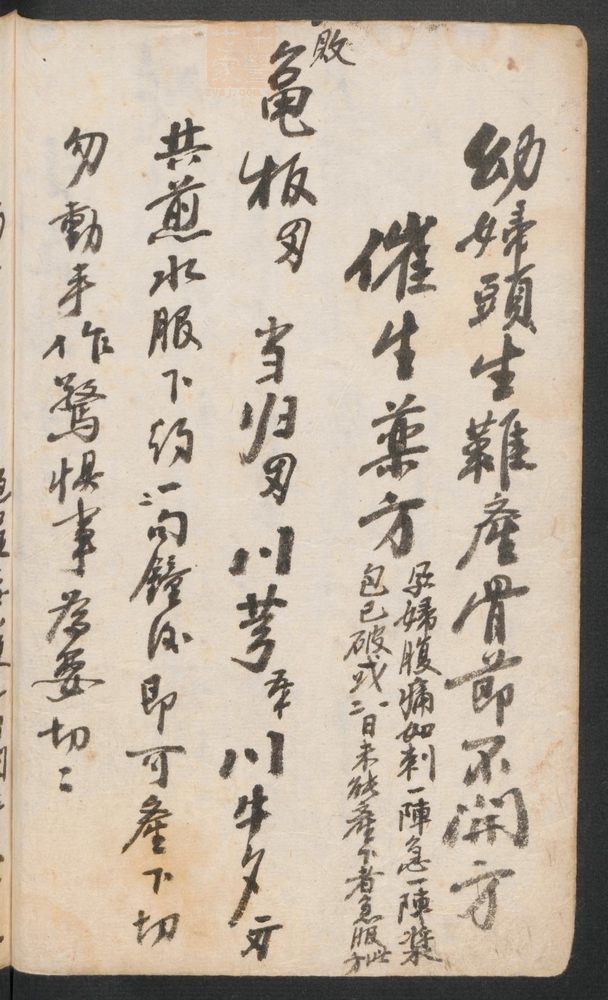 幼婦頭生難產骨節不開方
催生藥方
孕婦腹痛如刺一陣急一陣漿
包已破或二日未能產下者急服此方
敗
龜板 当归 川芎 川牛夕
共煎水服下約一句鐘后即可產下切
勿動手作驚惧事為要切二